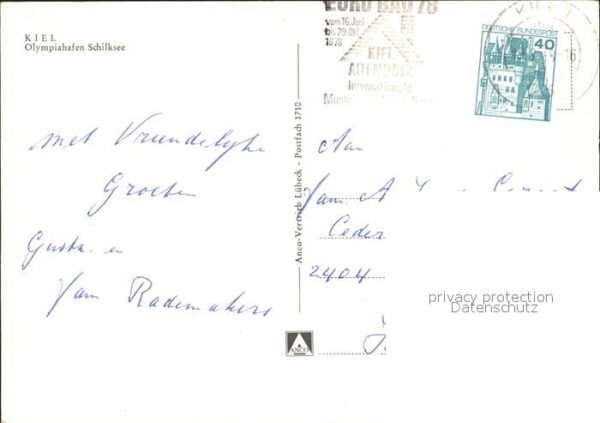 KIEL
Olympiahafen Schilksee
EURO BAU 78
vom 16. Juni
bis 29. Okt.
1978
KIEL
ALTENHOLZ
Internationale
KIEL 1
16
DEUTSCHE BUNDESPOST
40
met Vriendelyke
Groeten
Gusta en
Jam Rademakers
Anco-Vertrieb Lübeck - Postfach 1710
ANCO
Aan
Fam A
Ceder
2404
privacy protection
Datenschutz